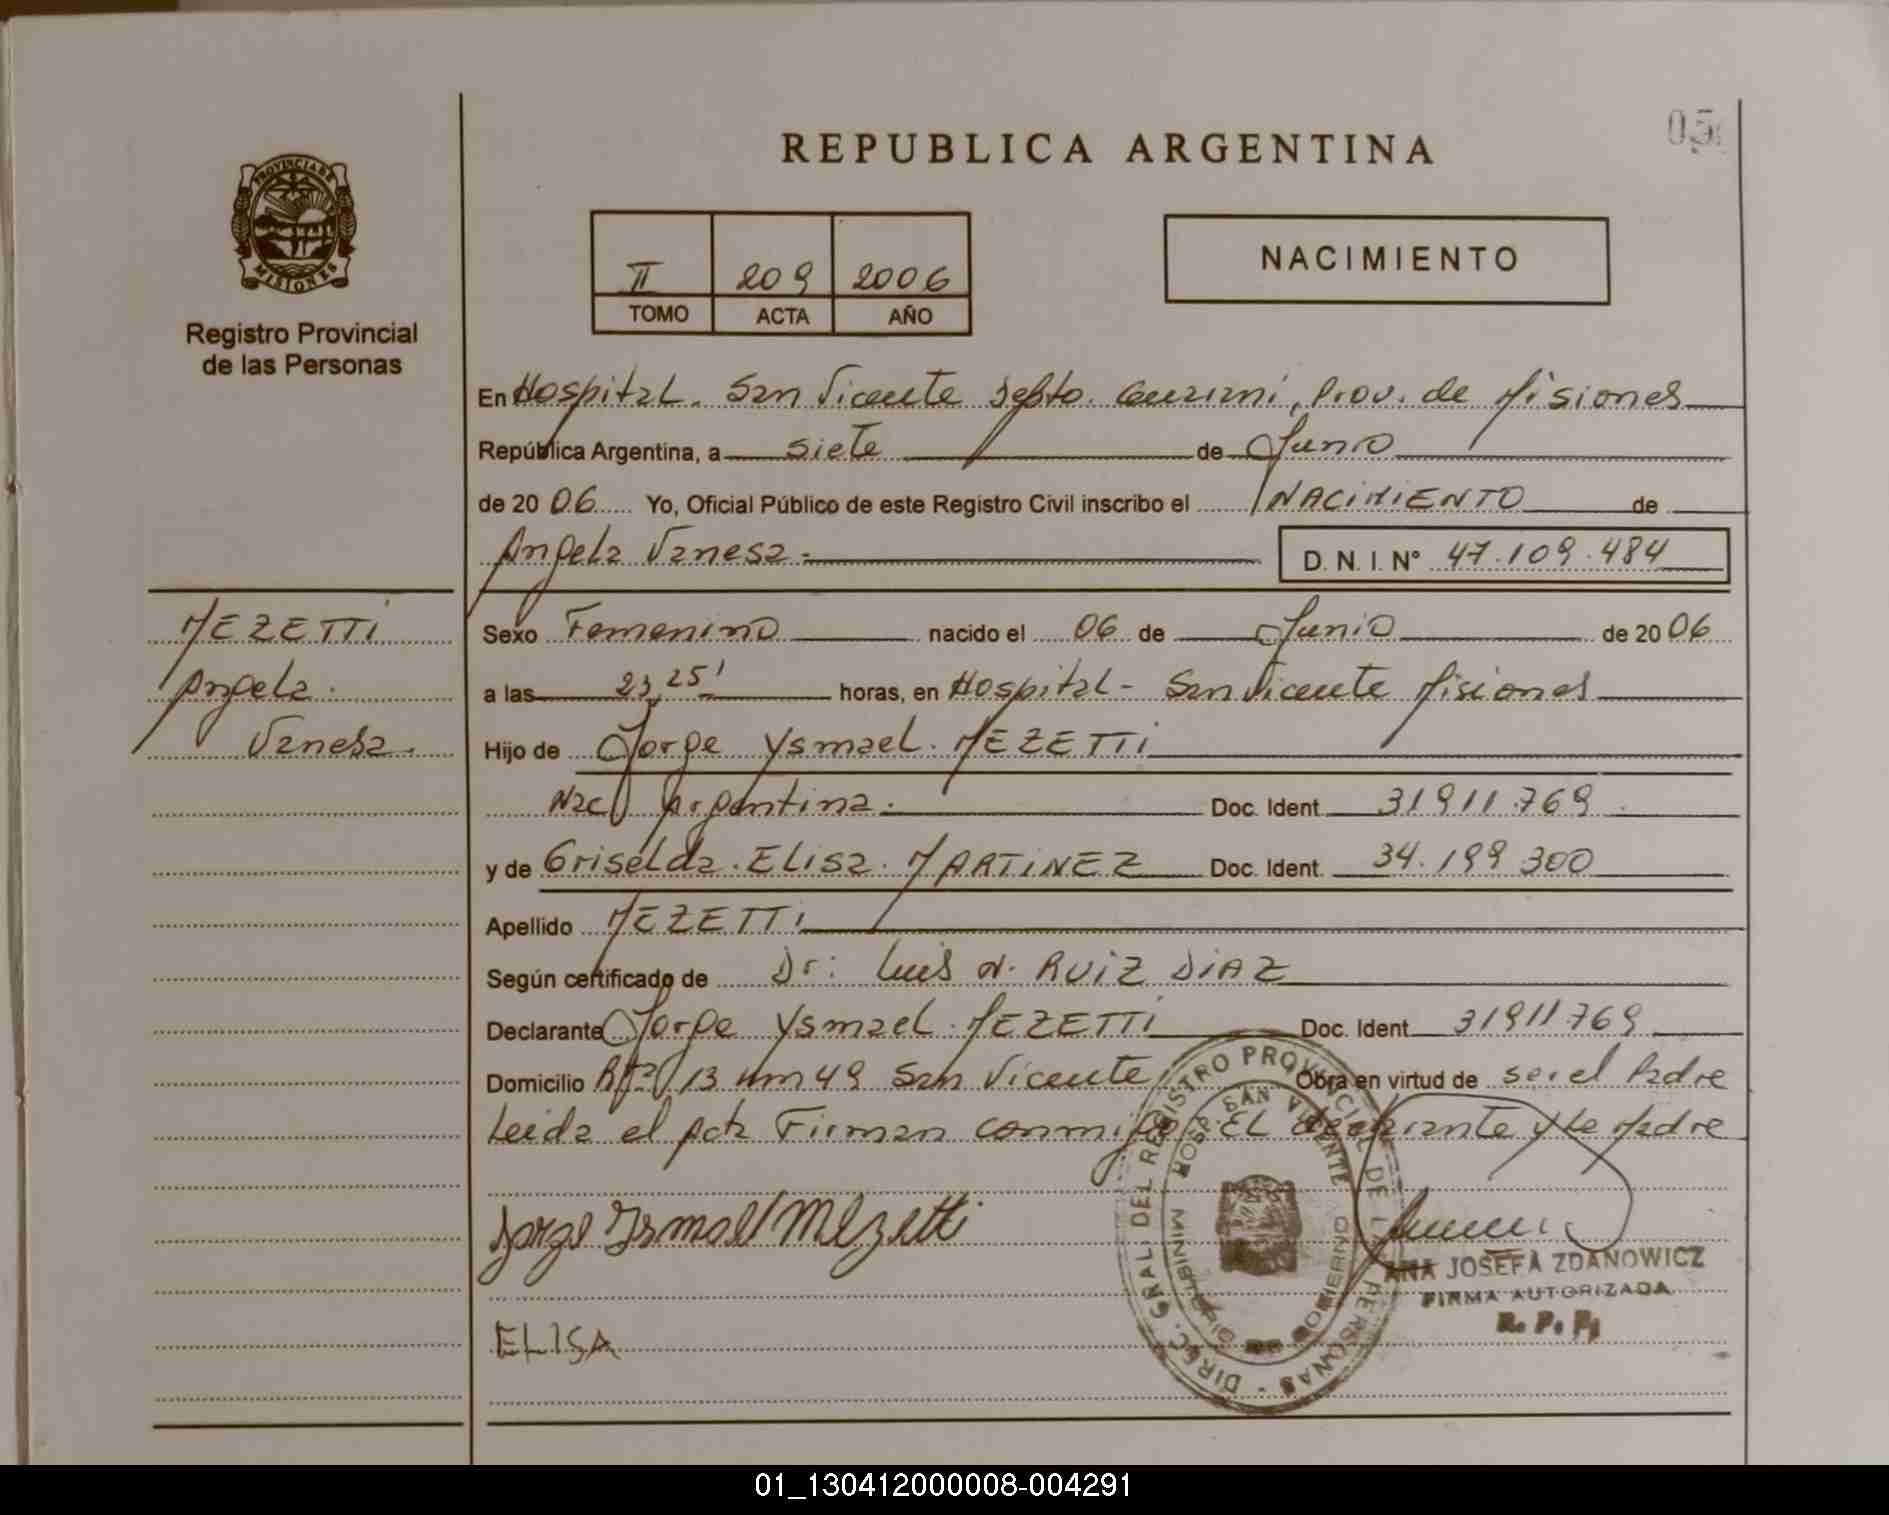 REPUBLICA ARGENTINA
05
PROVINCIA DE
MISIONES
Registro Provincial
de las Personas
II 209 2006
TOMO ACTA AÑO
NACIMIENTO
En Hospital. San Vicente Depto. Guarani, Prov. de Misiones
República Argentina, a siete de Junio
de 2006 Yo, Oficial Público de este Registro Civil inscribo el NACIMIENTO de
Angela Vanesa.
D. N. I. N° 47.109.484
MEZETTI
Angela.
Vanesa.
Sexo Femenino nacido el 06 de Junio de 2006
a las 23,25' horas, en Hospital - San Vicente Misiones
Hijo de Jorge Ysmael. MEZETTI
Nac Argentina. Doc. Ident. 31911.769
y de Griselda. Elisa. MARTINEZ Doc. Ident. 34.199 300
Apellido MEZETTI
Según certificado de Dr: Luis N. RUIZ DIAZ
Declarante Jorge Ysmael. MEZETTI Doc. Ident. 31911769
Domicilio Rta 13 km 49 San Vicente Obra en virtud de ser el Padre
Leida el Acta Firman conmigo EL declarante y la Madre
Jorge Ismael Mezetti
ELISA
DIREC. GRAL. DEL REGISTRO PROVINCIAL DE LAS PERSONAS
HOSP. SAN VICENTE
ANA JOSEFA ZDANOWICZ
FIRMA AUTORIZADA
R. P. P.
01_130412000008-004291